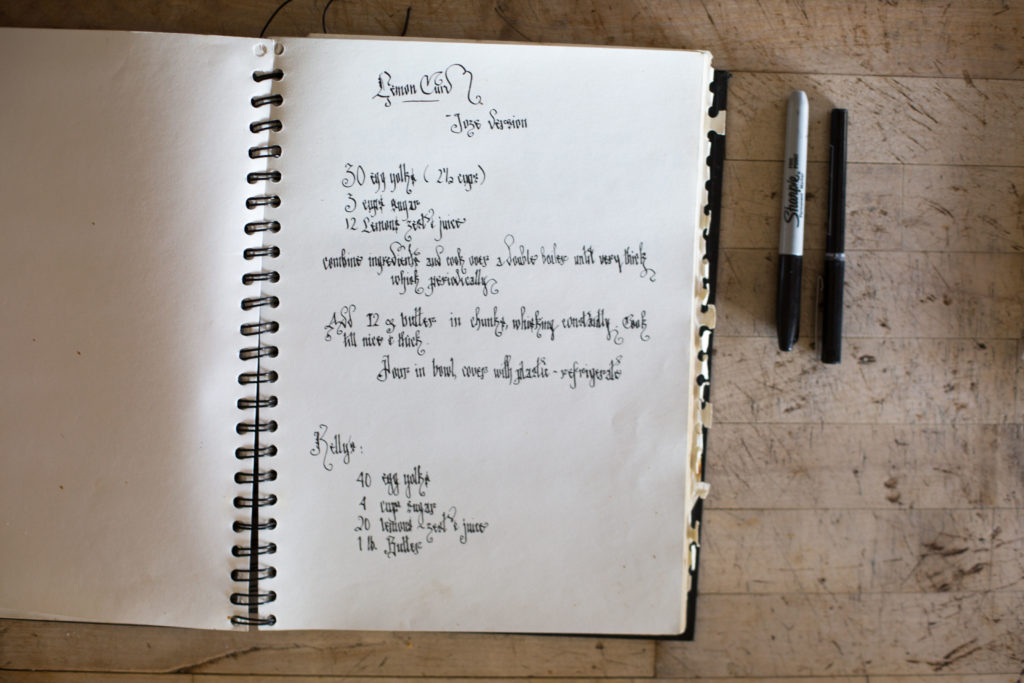 Lemon Curd
- Joze version
30 egg yolks ( 2½ cups)
3 cups sugar
12 Lemons zest & juice
combine ingredients and cook over a double boiler until very thick
whisk periodically
Add 12 oz butter in chunks, whisking constantly. Cook
till nice & thick.
Pour in bowl, cover with plastic - refrigerate
Kelly's:
40 egg yolks
4 cups sugar
20 lemons - zest & juice
1 lb. Butter
Sharpie